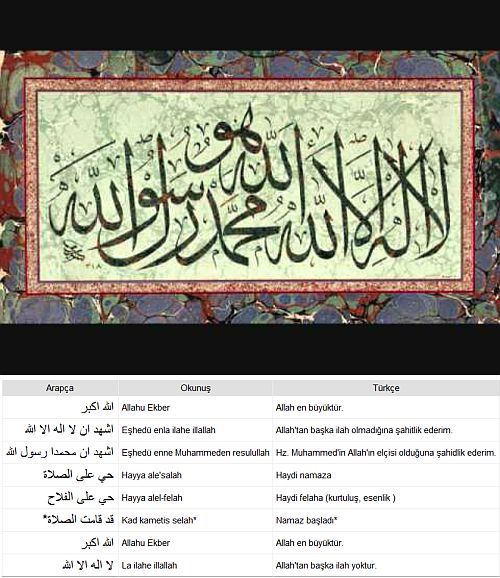 لا اله الا الله هو الله محمد رسول الله
Arapça Okunuş Türkçe
الله اكبر Allahu Ekber Allah en büyüktür.
اشهد ان لا اله الا الله Eşhedü enla ilahe illallah Allah'tan başka ilah olmadığına şahitlik ederim.
اشهد ان محمدا رسول الله Eşhedü enne Muhammeden resulullah Hz. Muhammed'in Allah'ın elçisi olduğuna şahidlik ederim.
حي على الصلاة Hayya ale'salah Haydi namaza
حي على الفلاح Hayya alel-felah Haydi felaha (kurtuluş, esenlik )
قد قامت الصلاة* Kad kametis selah* Namaz başladı*
الله اكبر Allahu Ekber Allah en büyüktür.
لا اله الا الله La ilahe illallah Allah'tan başka ilah yoktur.